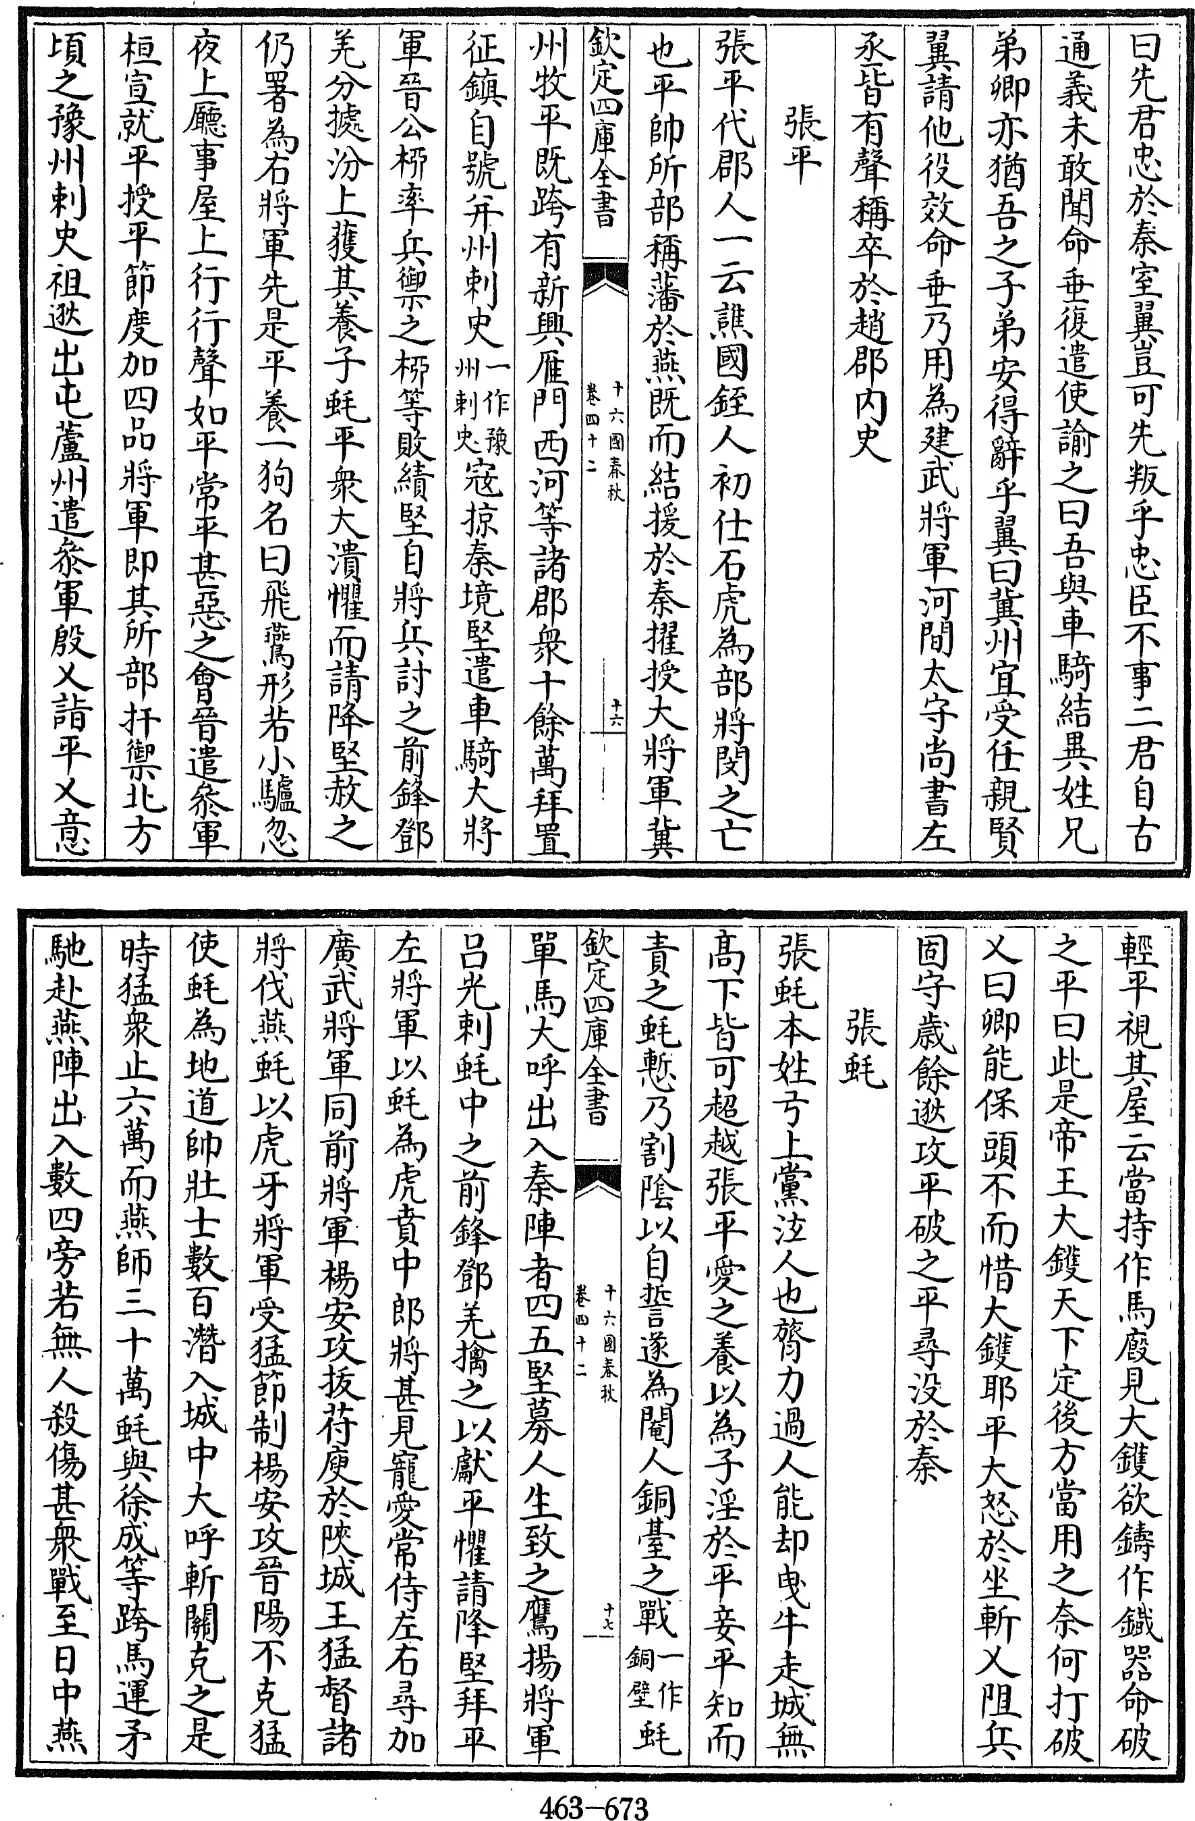 曰先君忠於秦室翼豈可先叛乎忠臣不事二君自古
通義未敢聞命垂復遣使諭之曰吾與車騎結異姓兄
弟卿亦猶吾之子弟安得辭乎翼曰冀州宜受任親賢
翼請他役效命垂乃用為建武將軍河間太守尚書左
丞皆有聲稱卒於趙郡內史
張平
張平代郡人一云譙國銍人初仕石虎為部將閔之亡
也平帥所部稱藩於燕既而結援於秦擢授大將軍冀
欽定四庫全書
十六國春秋
卷四十二
十六
州牧平既跨有新興雁門西河等諸郡衆十餘萬拜置
征鎮自號并州刺史一作豫州刺史寇掠秦境堅遣車騎大將
軍晉公桺率兵禦之桺等敗績堅自將兵討之前鋒鄧
羌分據汾上獲其養子蚝平衆大潰懼而請降堅赦之
仍署為右將軍先是平養一狗名曰飛鷰形若小驢忽
夜上廳事屋上行行聲如平常平甚惡之會晉遣叅軍
桓宣就平授平節度加四品將軍即其所部扞禦北方
頃之豫州刺史祖逖出屯蘆州遣叅軍殷乂詣平乂意
輕平視其屋云當持作馬廄見大鑊欲鑄作鐵器命破
之平曰此是帝王大鑊天下定後方當用之奈何打破
乂曰卿能保頭不而惜大鑊耶平大怒於坐斬乂阻兵
固守歲餘逖攻平破之平尋沒於秦
張蚝
張蚝本姓弓上黨泫人也膂力過人能却曳牛走城無
髙下皆可超越張平愛之養以為子淫於平妾平知而
責之蚝慙乃割陰以自誓遂為閹人銅臺之戰一作銅壁蚝
欽定四庫全書
十六國春秋
卷四十二
十七
單馬大呼出入秦陣者四五堅募人生致之鷹揚將軍
呂光刺蚝中之前鋒鄧羌擒之以獻平懼請降堅拜平
左將軍以蚝為虎賁中郎將甚見寵愛常侍左右尋加
廣武將軍同前將軍楊安攻拔苻廋於陝城王猛督諸
將伐燕蚝以虎牙將軍受猛節制楊安攻晉陽不克猛
使蚝為地道帥壯士數百潛入城中大呼斬關克之是
時猛衆止六萬而燕師三十萬蚝與徐成等跨馬運矛
馳赴燕陣出入數四旁若無人殺傷甚衆戰至日中燕
463-673